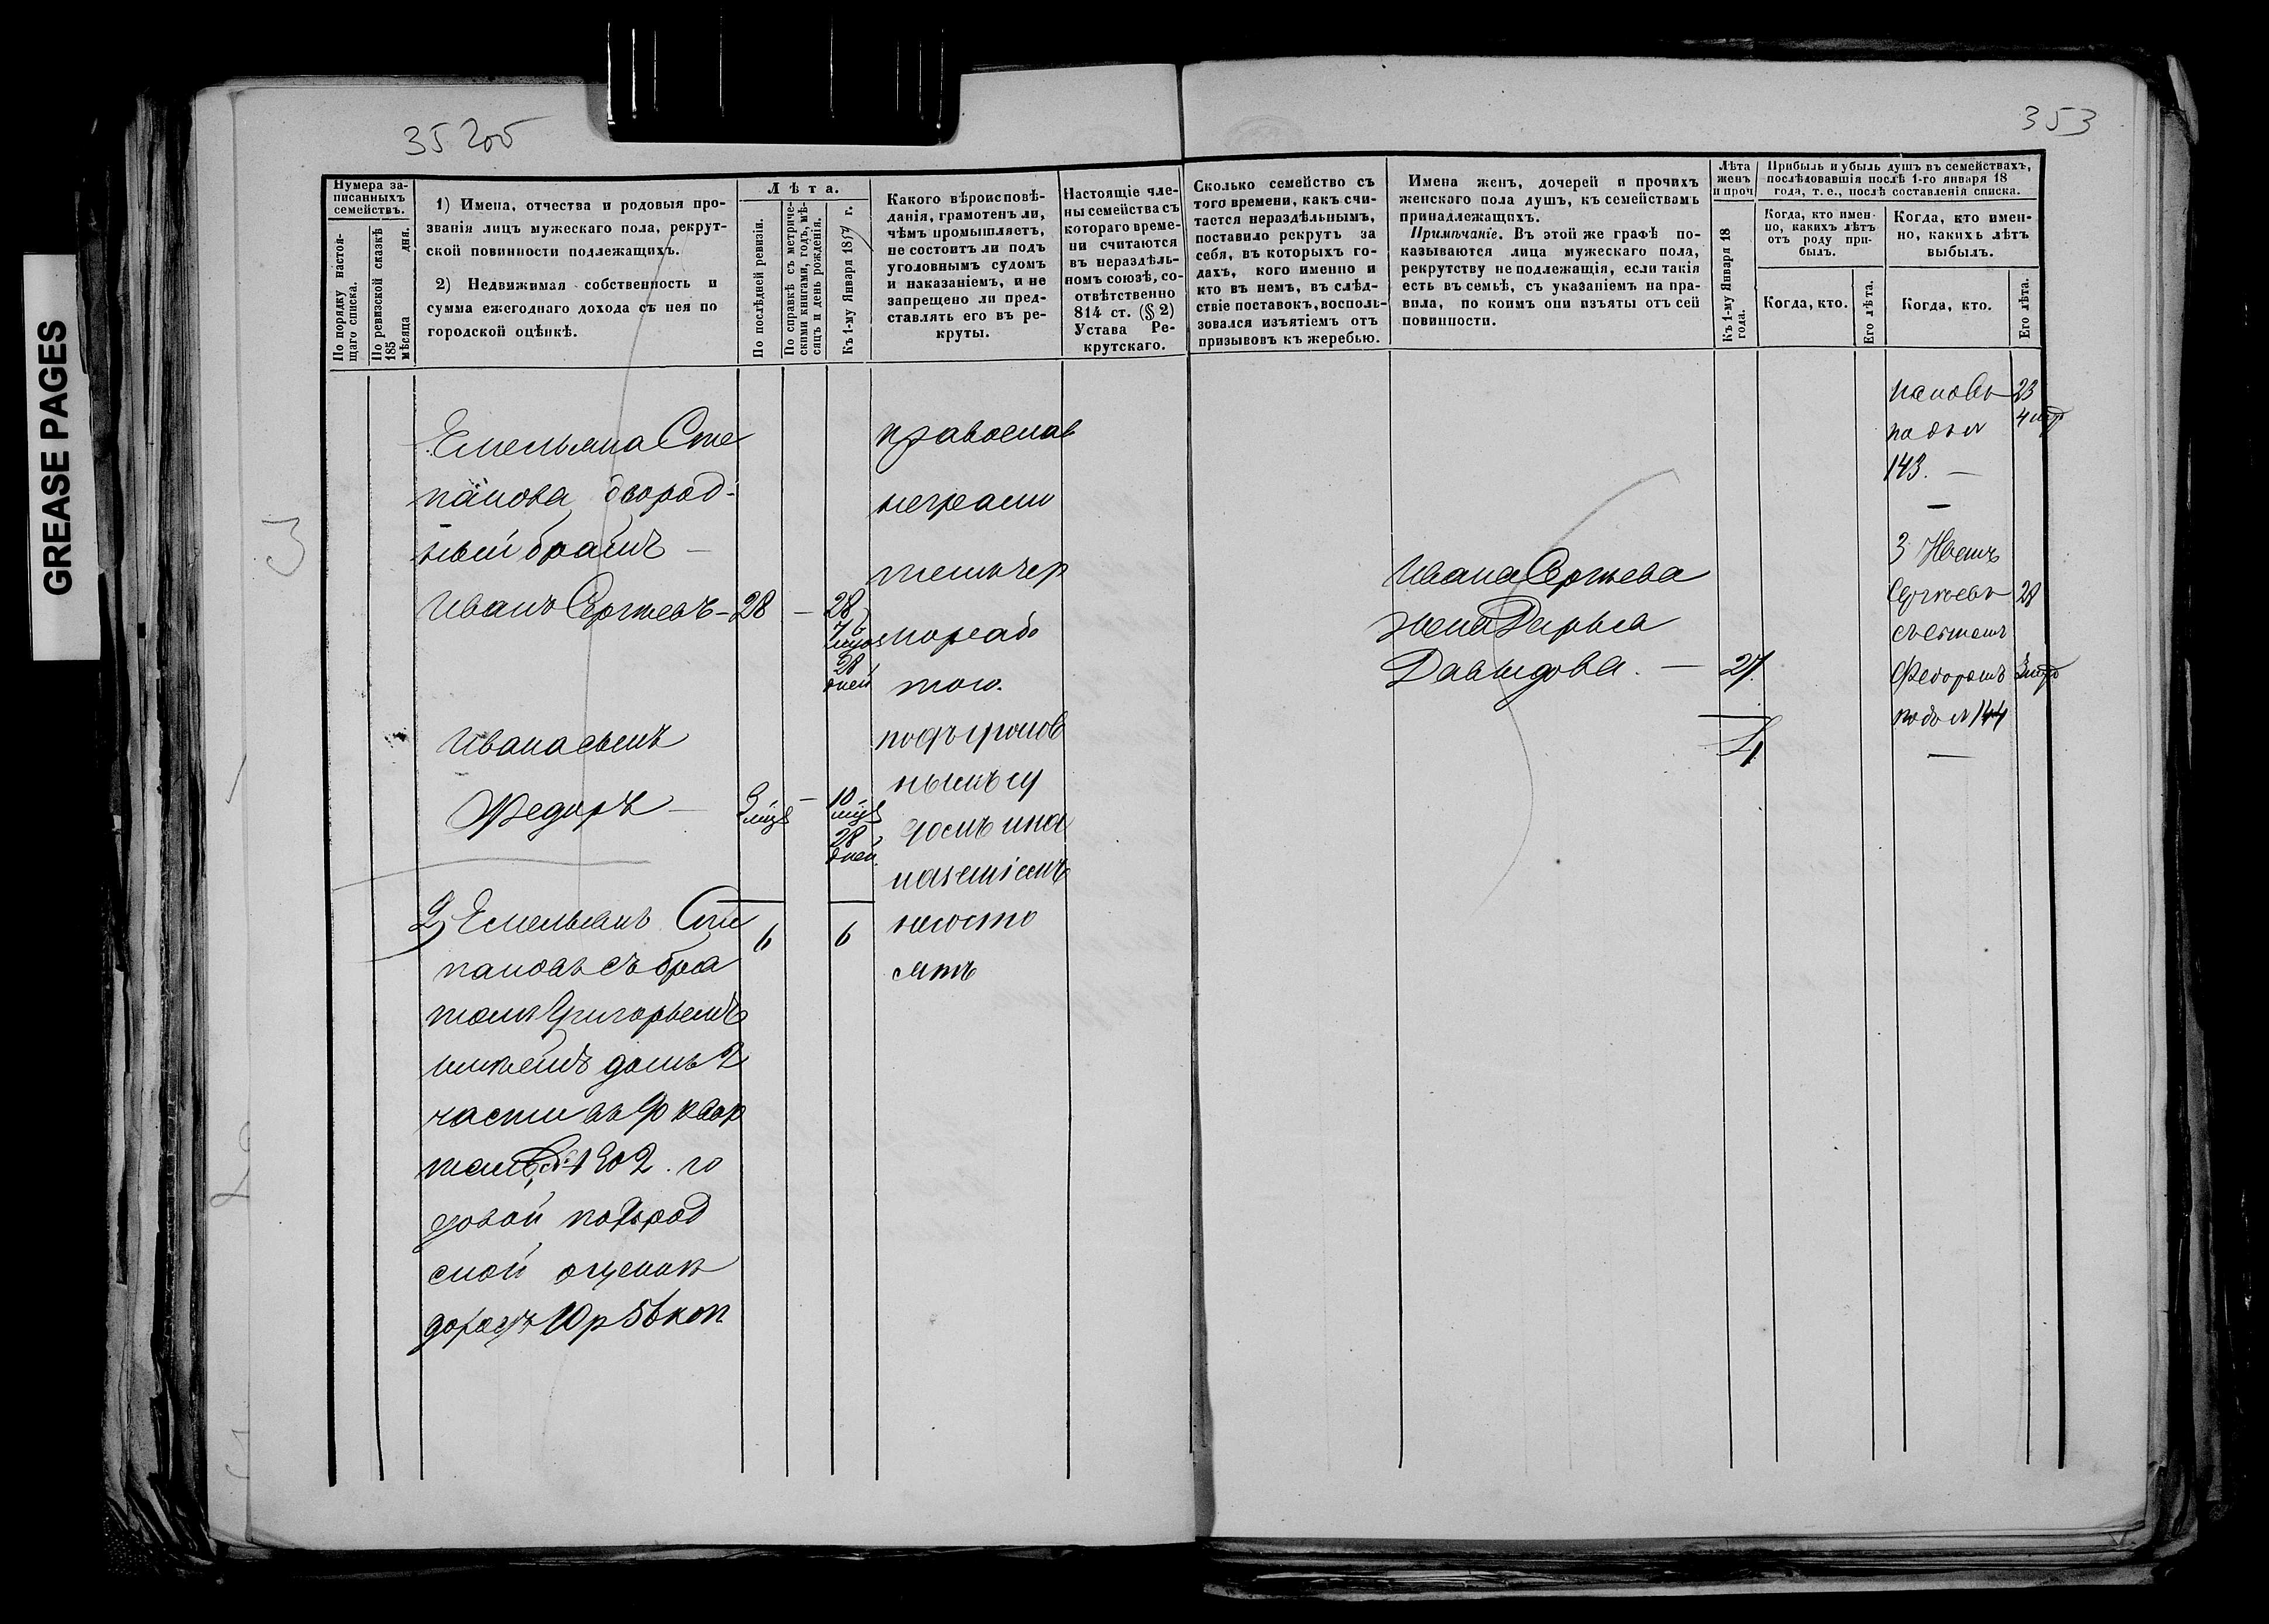 GREASE PAGES
353
Нумера записанныхъ семействъ.
По порядку настоящаго списка.
По ревизской сказкѣ 185 мѣсяца дня.
1) Имена, отчества и родовыя прозванiя лицъ мужескаго пола, рекрутской повинности подлежащихъ.
2) Недвижимая собственность и сумма ежегоднаго дохода съ нея по городской оцѣнкѣ.
Лѣта.
По послѣдней ревизiи.
По справкѣ съ метрическими книгами, годъ, мѣсяцъ и день рожденiя.
Къ 1-му Января 1857 г.
Какого вѣроисповѣданiя, грамотенъ ли, чѣмъ промышляетъ, не состоитъ ли подъ уголовнымъ судомъ и наказанiемъ, и не запрещено ли представлять его въ рекруты.
Настоящiе члены семейства съ котораго времени считаются въ нераздѣльномъ союзѣ, соотвѣтственно 814 ст. (§ 2) Устава Рекрутскаго.
Сколько семейство съ того времени, какъ считается нераздѣльнымъ, поставило рекрутъ за себя, въ которыхъ годахъ, кого именно и кто въ немъ, въ слѣдствiе поставокъ, воспользовался изъятiемъ отъ призывовъ къ жеребью.
Имена женъ, дочерей и прочихъ женскаго пола душъ, къ семействамъ принадлежащихъ.
Примѣчанiе. Въ этой же графѣ показываются лица мужескаго пола, рекрутству не подлежащiя, если такiя есть въ семьѣ, съ указанiемъ на правила, по коимъ они изъяты отъ сей повинности.
Лѣта женъ и проч
Къ 1-му Января 18 года.
Прибыль и убыль душъ въ семействахъ, послѣдовавшiя послѣ 1-го января 18 года, т. е., послѣ составленiя списка.
Когда, кто именно, какихъ лѣтъ отъ роду прибылъ.
Когда, кто именно, какихъ лѣтъ выбылъ.
Когда, кто.
Его лѣта.
Когда, кто.
Его лѣта.
Емельяна Сте
панова двород-
ный братъ —
Иванъ Сергѣевъ - 28 — 28
28 дней
Ивана сынъ
Федоръ — 10
28 дней
6 6
2) Емельянъ Сте
пановъ съ бра
томъ Григорьемъ
имѣетъ домъ 2
части въ
1302. го
довой по город
ской оценкѣ
доходъ 10 р 56 коп
православ
неграми
подъ уголов
нымъ су
домъ и на
казанiемъ
несосто
ятъ
Ивана Сергѣева
жена Дарья
Давыдова. — 27.
1
пановъ 23
143. —
3 Иванъ
Сергѣевъ 28
съ сыномъ
Федоромъ
144